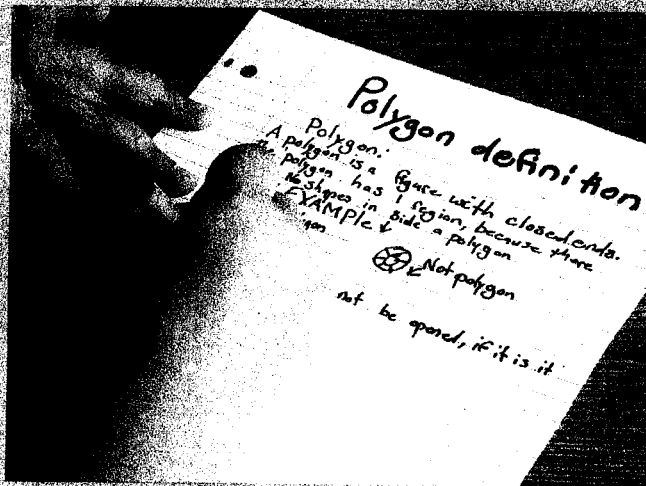 Polygon definition
Polygon:
A polygon is a figure with closed ends.
polygon has 1 region, because there
no shapes in side a polygon
EXAMPLE ↓
Not polygon
not be opened, if it is it